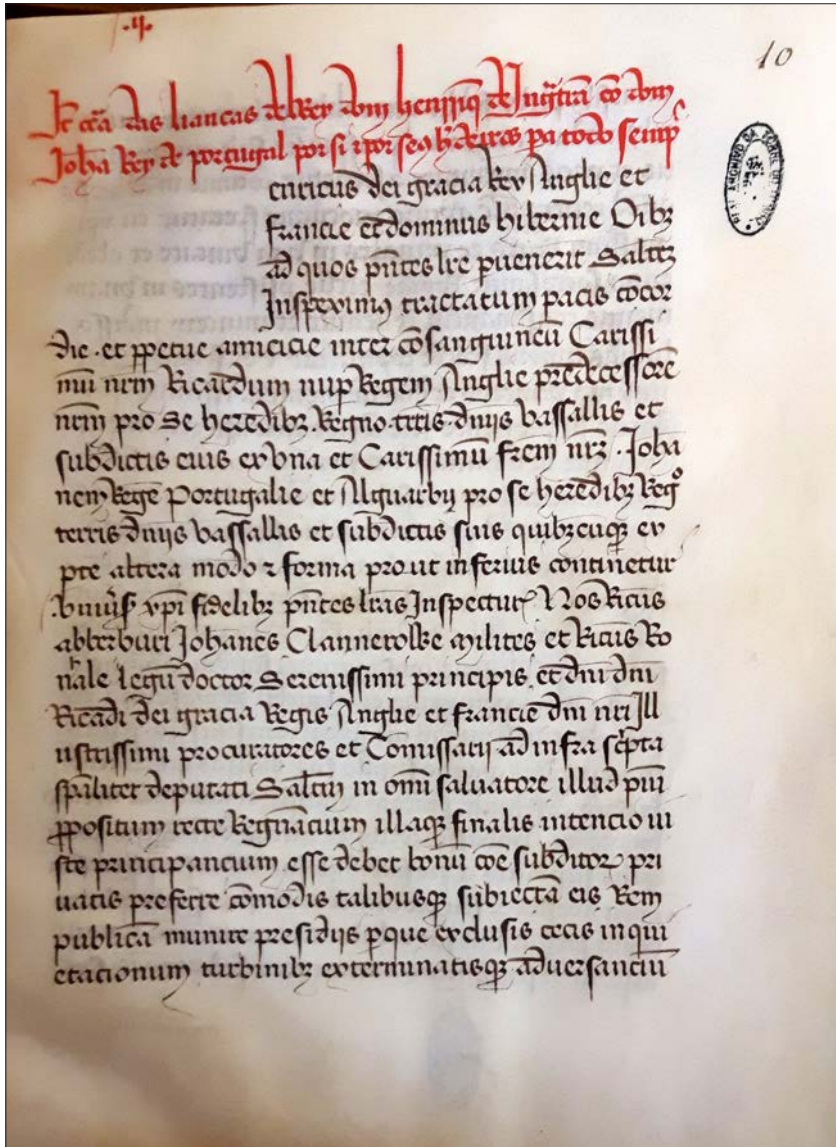 .ij.
10
It cta das liancas delRey dom henrriq̃ de Ingꝉtra cõ dom
Joha Rey de portugal por si ⁊ por seos hꝛdeiros pa todo semp̃
enricus dei gracia Rex Anglie et
francie et dominus hibernie Oibꝫ
ad quos pñtes lre puenerit Saltꝫ
Inspeximꝯ tractatum pacis cõcor
die · et ppetue amicicie inter cõsanguineũ Carissi
mũ nrm Ricardum nup Regem Anglie predecessorẽ
nrm pro se heredibꝫ Regno · terris · dniis vassallis et
subdictis eius ex vna et Carissimũ frem nrꝫ · Joha
nem Regẽ Portugalie et Alguarbij pro se heredibꝫ Regº
terris dniis vassallis et subdictis suis quibꝫcuqꝫ ex
pte altera modo ⁊ forma prout inferius continetur
vniũs xpi fidelibꝫ pñtes lras Inspectur Nos Ricus
abberburi Johanes Clannerolbe milites et Ricus Ro
nhale legũ doctor Serenissimi principis et dni dni
Ricardi dei gracia Regis Anglie et francie dni nri Ill
ustrissimi procuratores et Comissarij ad infra scpta
spãliter deputati Saltm in omi saluatore illud piũ
ꝓpositum recte Regnãcium illaqꝫ finalis intencio iu
ste principancium esse debet bonũ cõe subditor pri
uatis preferre cõmodis talibusqꝫ subiectã eis Rem
publicã munire presidijs perque exclusis cecis inqui
etacionum turbinibꝫ exterminatisqꝫ aduersanciũ